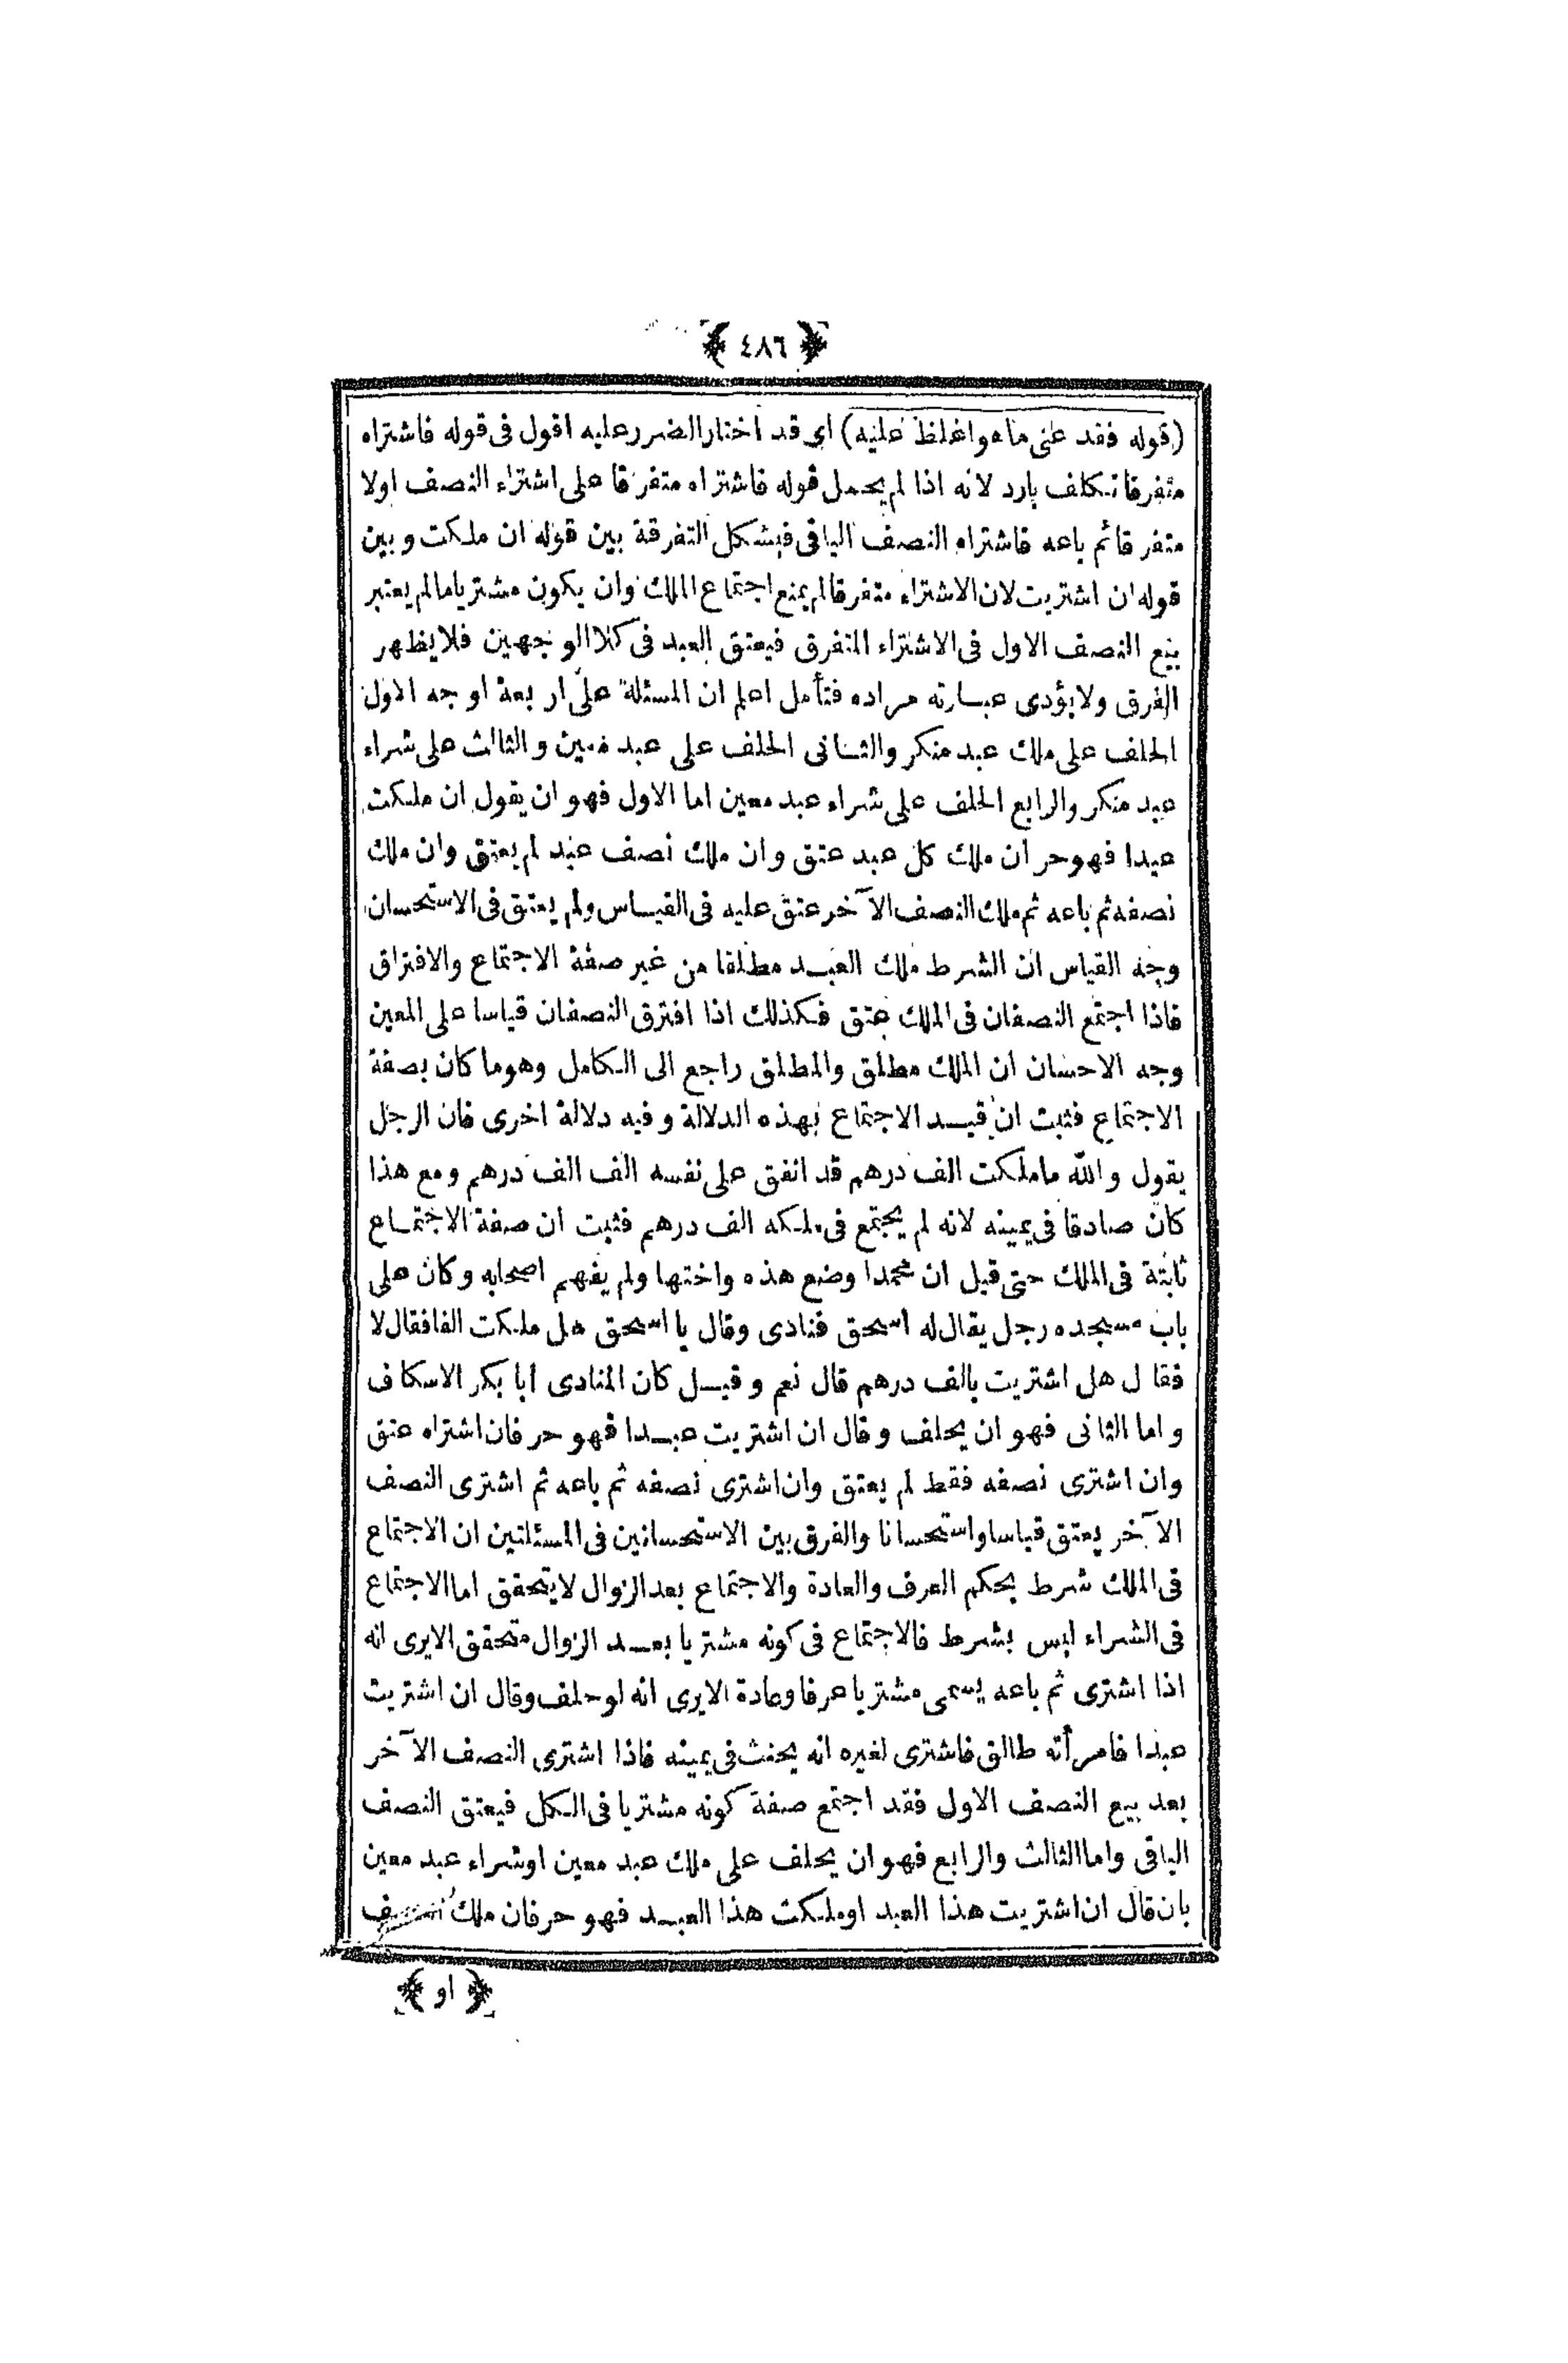 ﴿ ٤٨٦ ﴾
(قوله فقد عنى ما هو اغلظ عليه) اى قد اختار الضرر عليه اقول فى قوله فاشتراه
متفرقا تكلف بارد لانه اذا لم يحمل قوله فاشتراه متفرقا على اشتراء النصف اولا
متفرقا ثم باعه فاشتراه النصف الباقى فيشكل التفرقة بين قوله ان ملكت وبين
قوله ان اشتريت لان الاشتراء متفرقا لم يمنع اجتماع الملك وان يكون مشتريا ما لم يعتبر
بيع النصف الاول فى الاشتراء المتفرق فيعتق العبد فى كلا الوجهين فلا يظهر
الفرق ولا يؤدى عبارته مراده فتأمل اعلم ان المسئلة على اربعة اوجه الاول
الحلف على ملك عبد منكر والثانى الحلف على عبد معين والثالث على شراء
عبد منكر والرابع الحلف على شراء عبد معين اما الاول فهو ان يقول ان ملكت
عبدا فهو حر ان ملك كل عبد عتق وان ملك نصف عبد لم يعتق وان ملك
نصفه ثم باعه ثم ملك النصف الآخر عتق عليه فى القياس ولم يعتق فى الاستحسان
وجه القياس ان الشرط ملك العبد مطلقا من غير صفة الاجتماع والافتراق
فاذا اجتمع النصفان فى الملك عتق فكذلك اذا افترق النصفان قياسا على المعين
وجه الاحسان ان الملك مطلق والمطلق راجع الى الكامل وهو ما كان بصفة
الاجتماع فثبت ان قيد الاجتماع بهذه الدلالة وفيه دلالة اخرى فان الرجل
يقول والله ما ملكت الف درهم قد انفق على نفسه الف الف درهم ومع هذا
كان صادقا فى يمينه لانه لم يجتمع فى ملكه الف درهم فثبت ان صفة الاجتماع
ثابتة فى الملك حتى قيل ان محمدا وضع هذه واختها ولم يفهم اصحابه وكان على
باب مسجده رجل يقال له اسحق فنادى وقال يا اسحق هل ملكت الفا فقال لا
فقال هل اشتريت بالف درهم قال نعم وقيل كان المنادى ابا بكر الاسكاف
واما الثانى فهو ان يحلف وقال ان اشتريت عبدا فهو حر فان اشتراه عتق
وان اشترى نصفه فقط لم يعتق وان اشترى نصفه ثم باعه ثم اشترى النصف
الآخر يعتق قياسا واستحسانا والفرق بين الاستحسانين فى المسئلتين ان الاجتماع
فى الملك شرط بحكم العرف والعادة والاجتماع بعد الزوال لا يتحقق اما الاجتماع
فى الشراء ليس بشرط فالاجتماع فى كونه مشتريا بعد الزوال متحقق الايرى انه
اذا اشترى ثم باعه يسمى مشتريا عرفا وعادة الايرى انه لو حلف وقال ان اشتريت
عبدا فامرأته طالق فاشترى لغيره انه يحنث فى يمينه فاذا اشترى النصف الآخر
بعد بيع النصف الاول فقد اجتمع صفة كونه مشتريا فى الكل فيعتق النصف
الباقى واما الثالث والرابع فهو ان يحلف على ملك عبد معين او شراء عبد معين
بان قال ان اشتريت هذا العبد او ملكت هذا العبد فهو حر فان ملك نصف
﴿ او ﴾